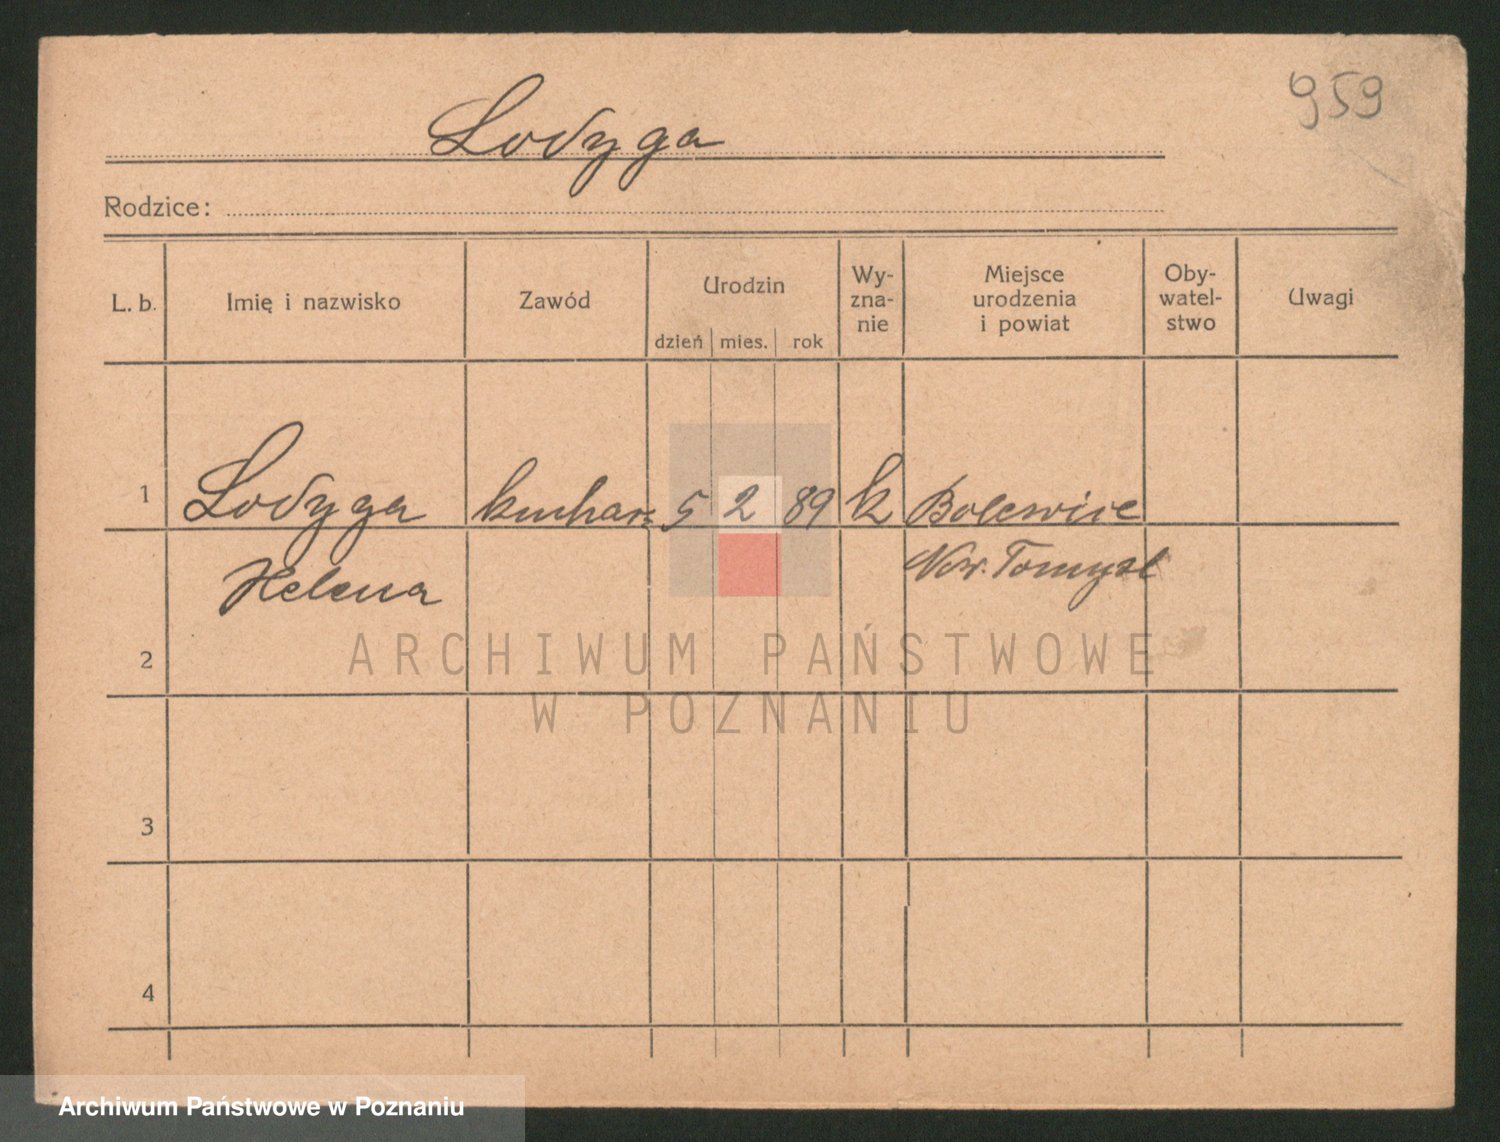 959
Lodyga
Rodzice:
L. b. Imię i nazwisko Zawód Urodzin dzień mies. rok Wy-zna-nie Miejsce urodzenia i powiat Oby-watel-stwo Uwagi
1 Lodyga kucharz 5 2 89 k Bolewice
Helena Now. Tomysl
2
ARCHIWUM PAŃSTWOWE
W POZNANIU
3
4
Archiwum Państwowe w Poznaniu